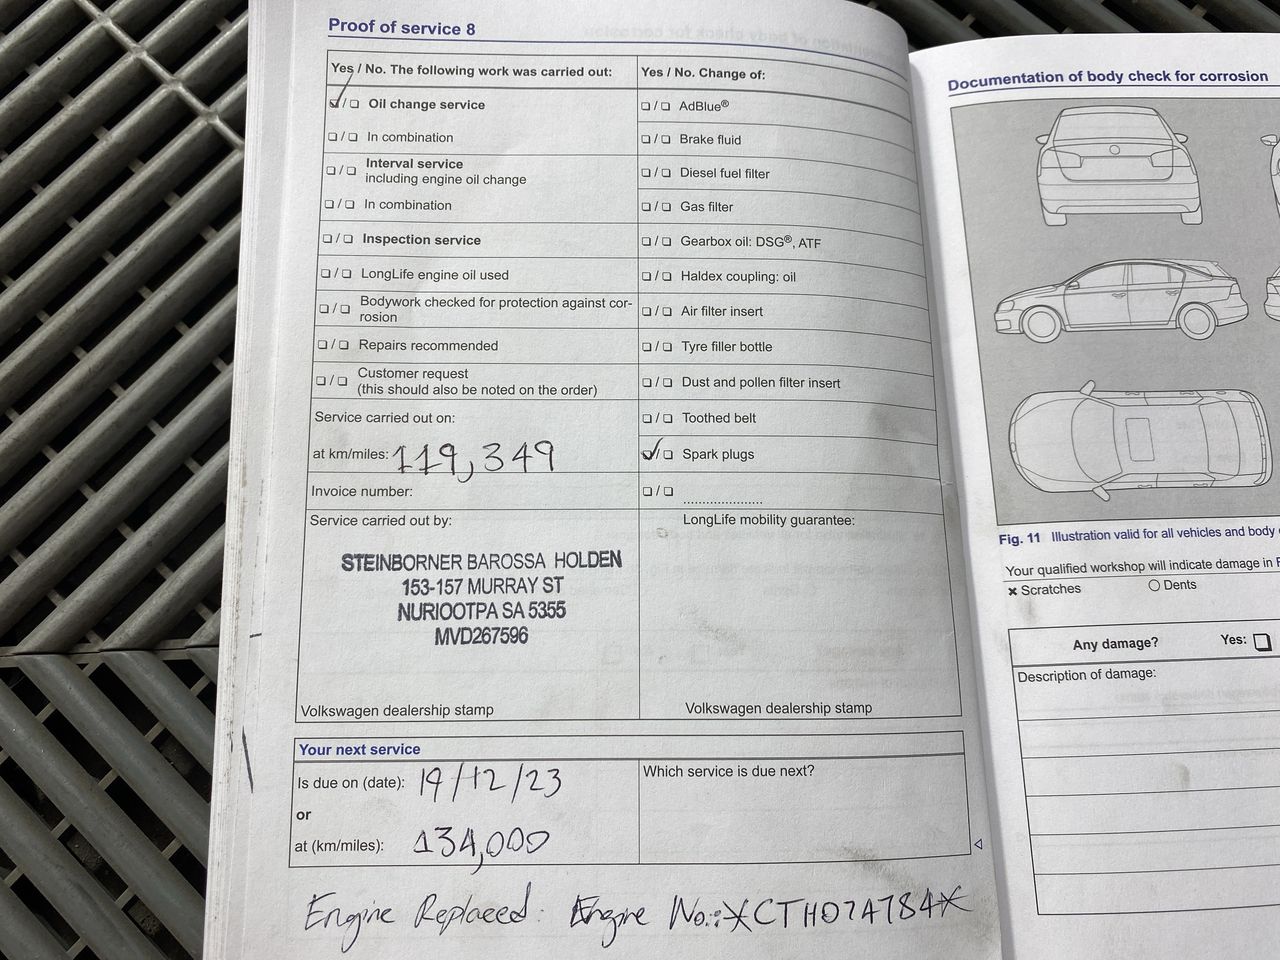 Proof of service 8
Yes / No. The following work was carried out:
Oil change service
In combination
Interval service
including engine oil change
In combination
Inspection service
LongLife engine oil used
Bodywork checked for protection against cor-
rosion
Repairs recommended
Customer request
(this should also be noted on the order)
Service carried out on:
at km/miles: 119,349
Invoice number:
Yes / No. Change of:
AdBlue®
Brake fluid
Diesel fuel filter
Gas filter
Gearbox oil: DSG®, ATF
Haldex coupling: oil
Air filter insert
Tyre filler bottle
Dust and pollen filter insert
Toothed belt
Spark plugs
Service carried out by:
STEINBORNER BAROSSA HOLDEN
153-157 MURRAY ST
NURIOOTPA SA 5355
MVD267596
Volkswagen dealership stamp
LongLife mobility guarantee:
Volkswagen dealership stamp
Your next service
Is due on (date): 19/12/23
or
at (km/miles): 134,000
Which service is due next?
Engine Replaced: Engine No.:*CTH07A784*
Documentation of body check for corrosion
Fig. 11 Illustration valid for all vehicles and body
Your qualified workshop will indicate damage in
× Scratches
Dents
Any damage? Yes:
Description of damage: